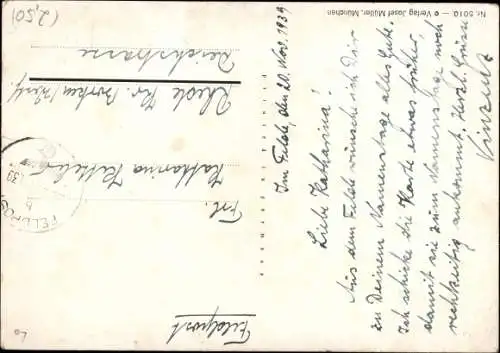 Nr. 5010 — © Verlag Josef Müller, München
Im Felde, den 20. Nov. 1939
Liebe Katharina!
Aus dem Felde wünsche ich Dir
zu Deinem Namenstage alles Gute.
Ich schicke die Karte etwas früher,
damit sie zum Namenstage noch
rechtzeitig ankommt. Herzl. Grüsse
Vinzenz
Feldpost
Frl.
Katharina
Rhede Kr. Borken/Westf.
(2,50)
FELDPOST